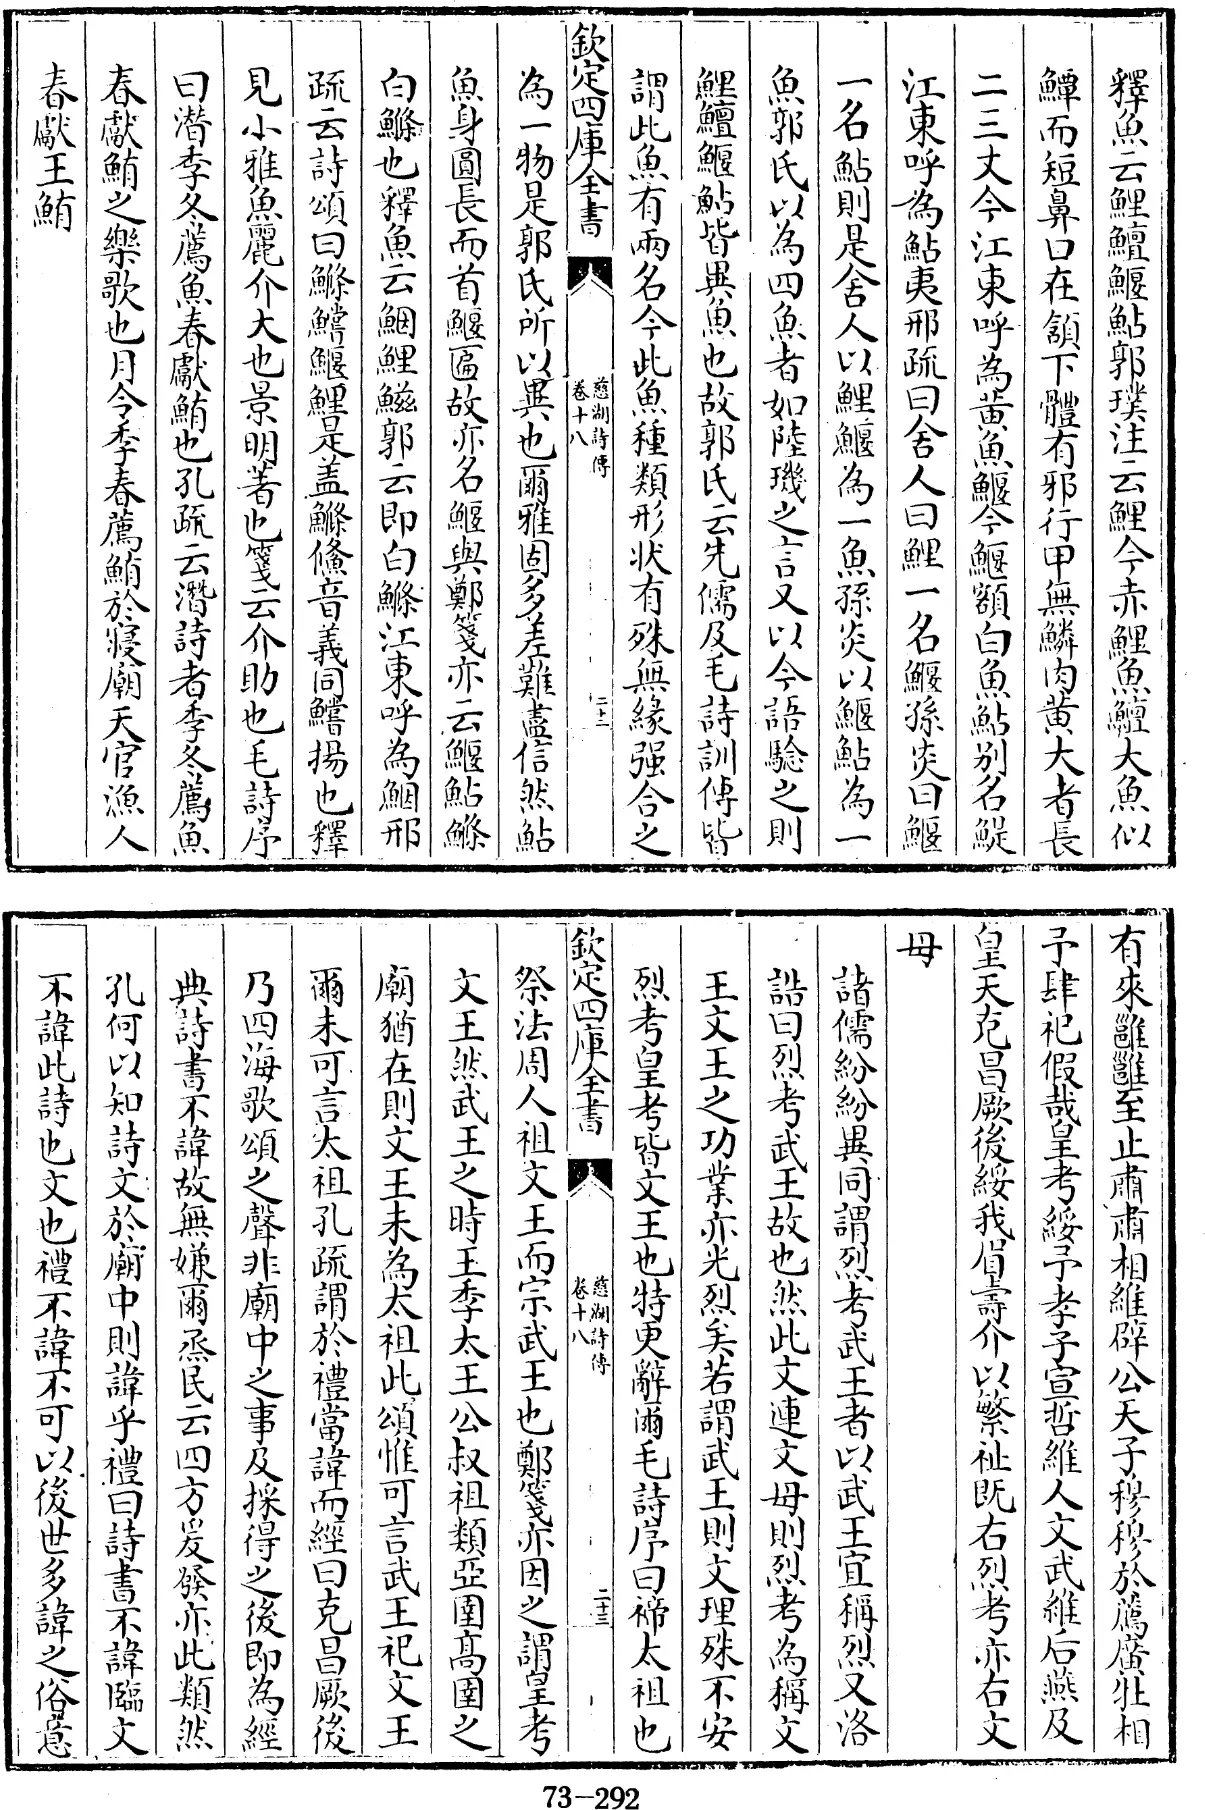 釋魚云鯉鱣鰋鮎郭璞注云鯉今赤鯉魚鱣大魚似
鱏而短鼻口在頷下體有邪行甲無鱗肉黄大者長
二三丈今江東呼為黄魚鰋今鰋額白魚鮎别名鯷
江東呼為鮎夷邢疏曰舍人曰鯉一名鱣孫炎曰鰋
一名鮎則是舍人以鯉鱣為一魚孫炎以鰋鮎為一
魚郭氏以為四魚者如陸璣之言又以今語驗之則
鯉鱣鰋鮎皆異魚也故郭氏云先儒及毛詩訓傳皆
謂此魚有兩名今此魚種類形狀有殊無緣强合之
欽定四庫全書
慈湖詩傳
卷十八
二十二
為一物是郭氏所以異也爾雅固多差難盡信然鮎
魚身圓長而首鰋匾故亦名鰋與鄭箋亦云鰋鮎鰷
白鰷也釋魚云鮂鯉鰦郭云即白鰷江東呼為鮂邢
疏云詩頌曰鰷鱨鰋鯉是盖鰷鯈音義同鱨揚也釋
見小雅魚麗介大也景明著也箋云介助也毛詩序
曰潛季冬薦魚春獻鮪也孔疏云濳詩者季冬薦魚
春獻鮪之樂歌也月令季春薦鮪於寢廟天官漁人
春獻王鮪
有來雝雝至止肅肅相維辟公天子穆穆於薦廣牡相
予肆祀假哉皇考綏予孝子宣哲維人文武維后燕及
皇天克昌厥後綏我眉壽介以繁祉既右烈考亦右文
母
諸儒紛紛異同謂烈考武王者以武王宜稱烈又洛
誥曰烈考武王故也然此文連文母則烈考為稱文
王文王之功業亦光烈矣若謂武王則文理殊不安
烈考皇考皆文王也特更辭爾毛詩序曰禘太祖也
欽定四庫全書
慈湖詩傳
卷十八
二十三
祭法周人祖文王而宗武王也鄭箋亦因之謂皇考
文王然武王之時王季太王公叔祖類亞圉高圉之
廟猶在則文王未為太祖此頌惟可言武王祀文王
爾未可言太祖孔疏謂於禮當諱而經曰克昌厥後
乃四海歌頌之聲非廟中之事及採得之後即為經
典詩書不諱故無嫌爾烝民云四方爰發亦此類然
孔何以知詩文於廟中則諱乎禮曰詩書不諱臨文
不諱此詩也文也禮不諱不可以後世多諱之俗意
73-292